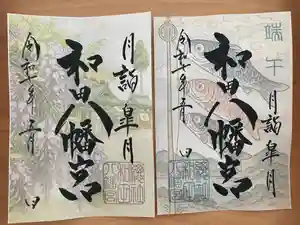 月詣 皐月
和田八幡宮
令和二年五月 日
端午
月詣 皐月
和田八幡宮
令和二年五月 日